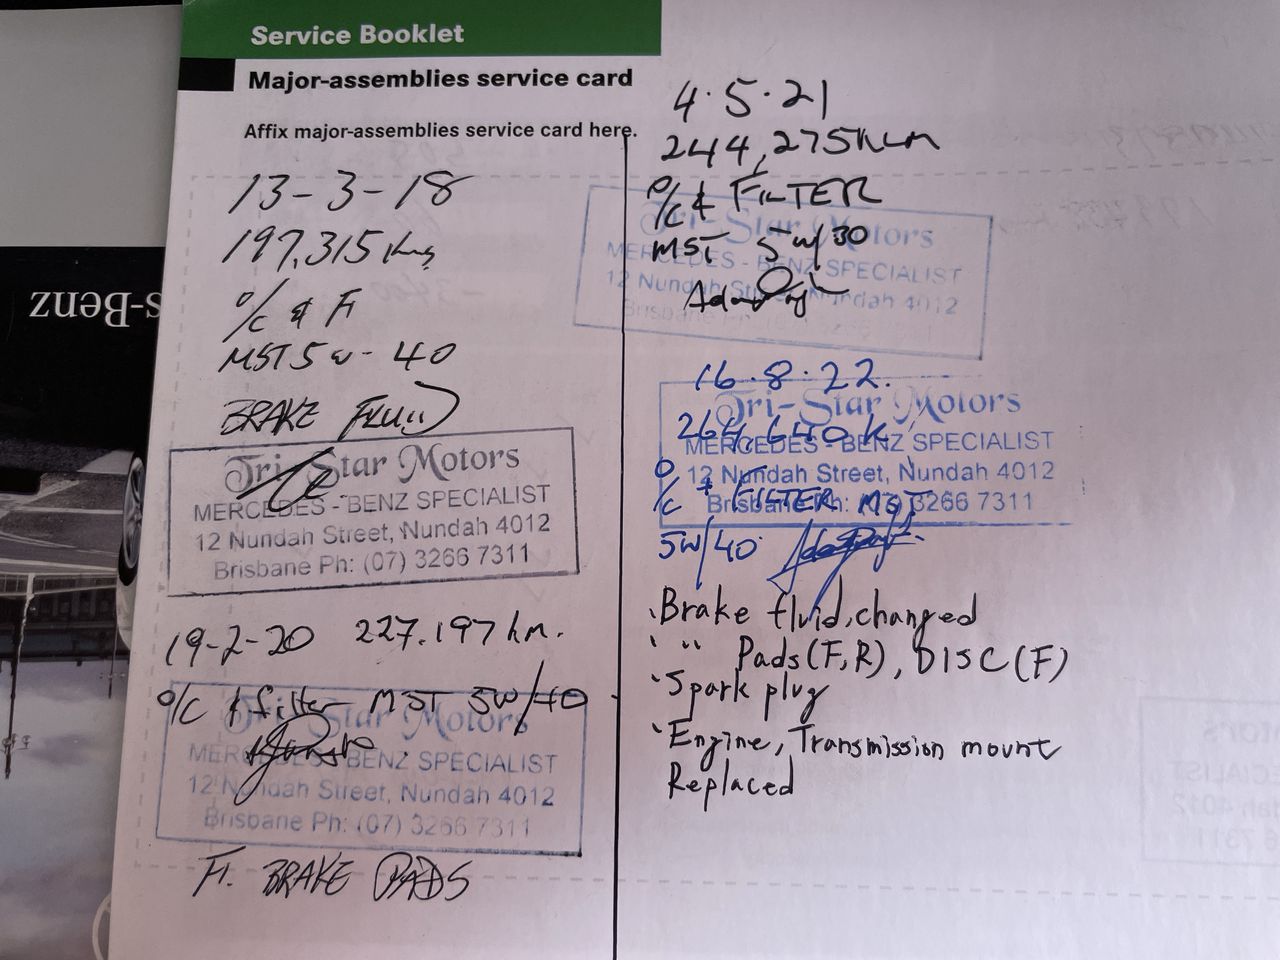 Service Booklet
Major-assemblies service card
Affix major-assemblies service card here.
s-Benz
13-3-18
197,315 kms
o/c & F
MST 5w-40
BRAKE FLUID
Tri-Star Motors
MERCEDES - BENZ SPECIALIST
12 Nundah Street, Nundah 4012
Brisbane Ph: (07) 3266 7311
19-2-20 227.197 km.
o/c & filter MST 5W/40
Tri-Star Motors
MERCEDES - BENZ SPECIALIST
12 Nundah Street, Nundah 4012
Brisbane Ph: (07) 3266 7311
Ft. BRAKE PADS
4.5.21
244,275 km
o/c & FILTER
MST 5w/30
Tri-Star Motors
MERCEDES - BENZ SPECIALIST
12 Nundah Street, Nundah 4012
Brisbane Ph: (07) 3266 7311
16.8.22.
264,640 K
o/c + FILTER MST
5W/40
Tri-Star Motors
MERCEDES - BENZ SPECIALIST
12 Nundah Street, Nundah 4012
Brisbane Ph: (07) 3266 7311
· Brake fluid, changed
· " Pads (F,R), DISC (F)
· Spark plug
· Engine, Transmission mount
Replaced